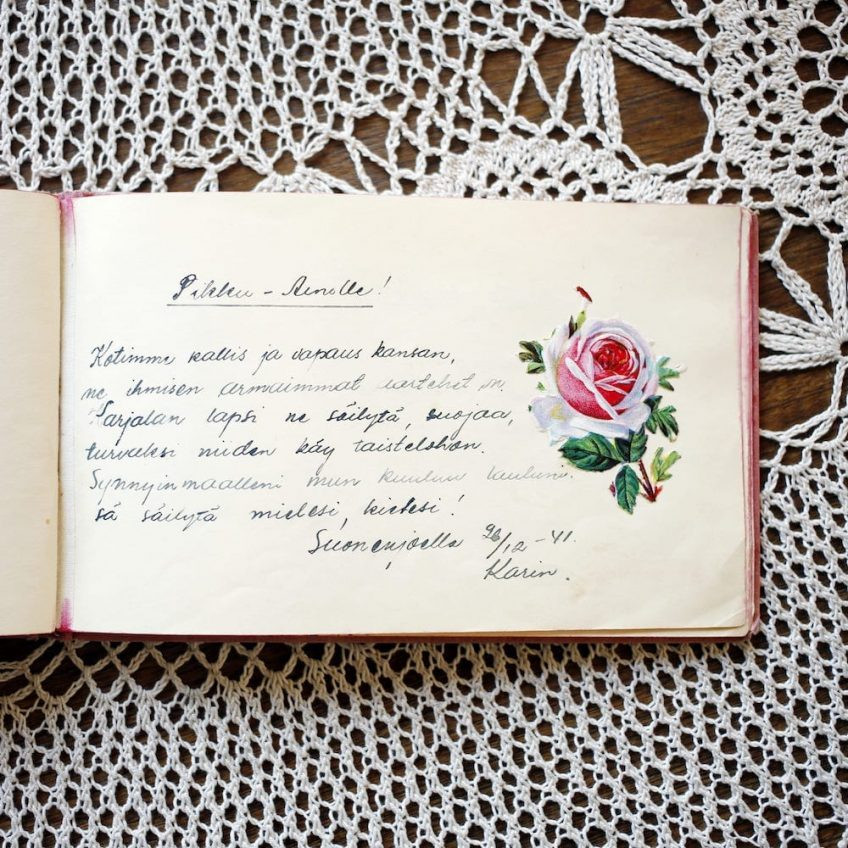 Pikku - Ainolle!
Kotimme kallis ja vapaus kansan,
ne ihmisen armaimmat aartehet on.
Karjalan lapsi ne säilytä, suojaa,
turvaksi niiden käy taistelohon.
Synnyinmaalleni mun kuuluu lauluni.
sä säilytä mielesi, kielesi!
Suonenjoella 26/12 - 41.
Karin.